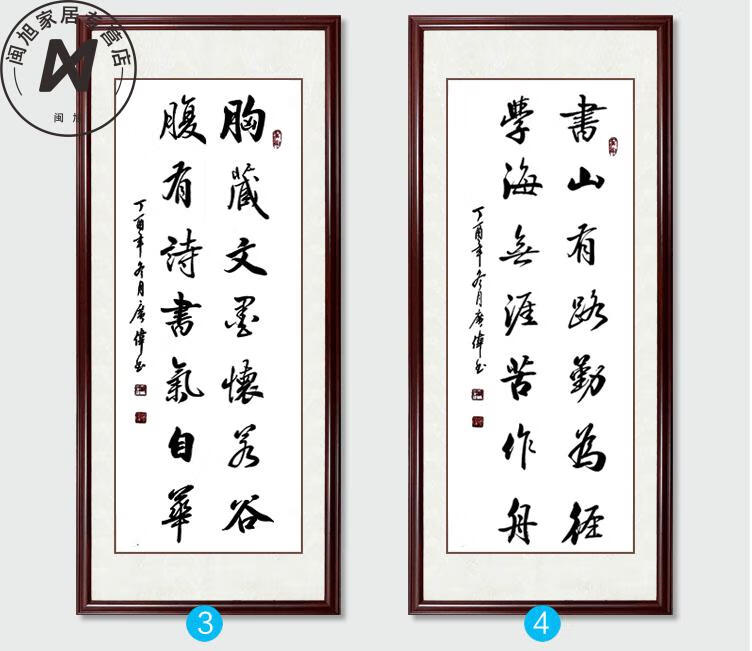 闽旭家居专营店
闽旭
胸藏文墨懷若谷
腹有詩書氣自華
丁酉年冬月广偉书
3
书山有路勤為径
學海無涯苦作舟
丁酉年冬月广偉书
4